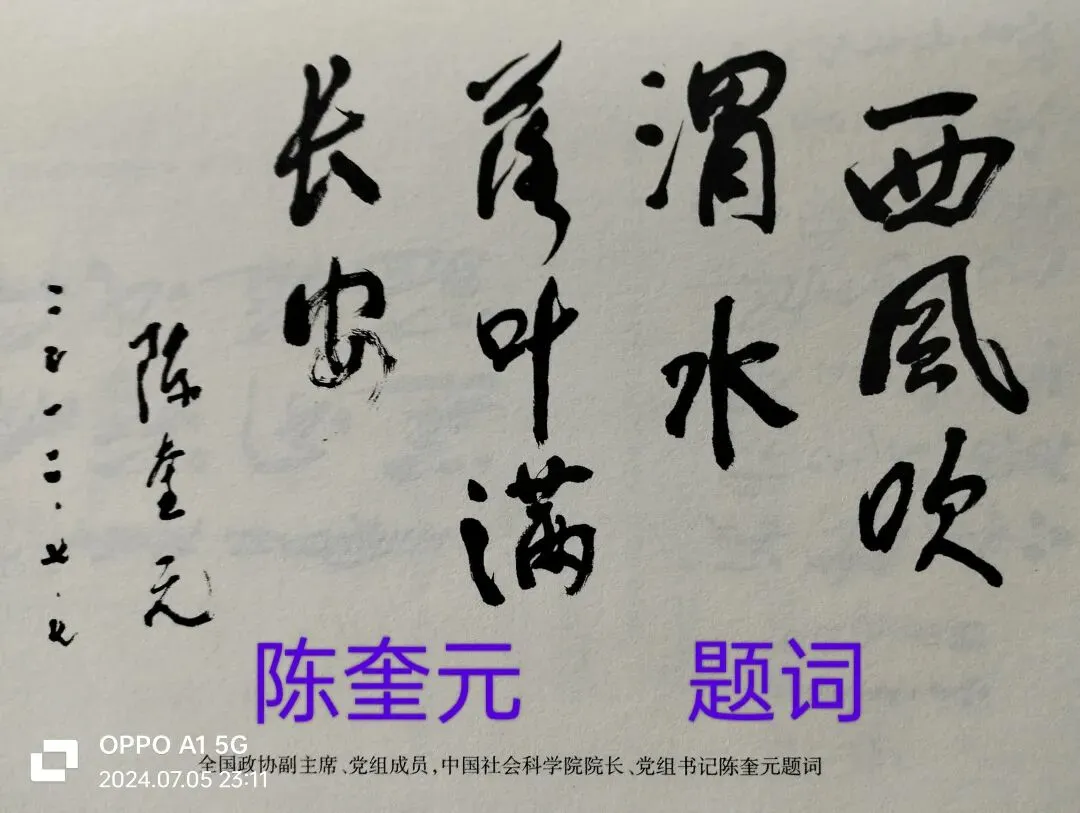 西風吹
渭水
落叶满
长安
陈奎元
二〇一二.七.七
陈奎元 题词
全国政协副主席、党组成员,中国社会科学院院长、党组书记陈奎元题词
OPPO A1 5G
2024.07.05 23:11